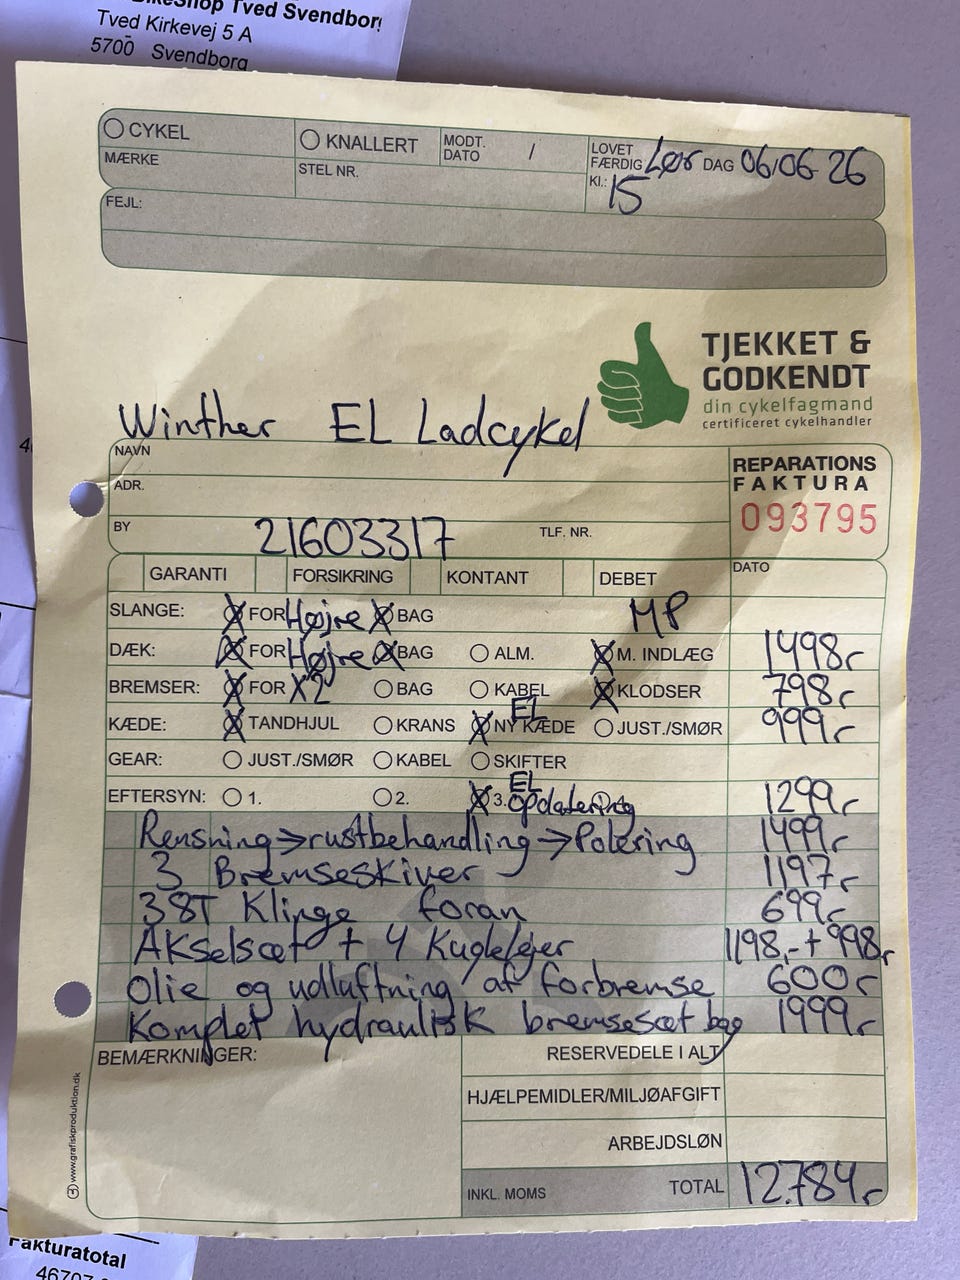 BikeShop Tved Svendborg
Tved Kirkevej 5 A
5700 Svendborg
CYKEL
KNALLERT
MODT. DATO /
LOVET FÆRDIG Lør DAG 06/06-26
MÆRKE
STEL NR.
Kl.: 15
FEJL:
TJEKKET &
GODKENDT
din cykelfagmand
certificeret cykelhandler
Winther EL Ladcykel
NAVN
ADR.
REPARATIONS
FAKTURA
093795
BY 21603317 TLF. NR.
DATO
GARANTI FORSIKRING KONTANT DEBET
SLANGE: X FOR Højre X BAG MP
DÆK: X FOR Højre X BAG ALM. X M. INDLÆG 1498,-
BREMSER: X FOR X2 BAG KABEL X KLODSER 798,-
KÆDE: X TANDHJUL KRANS X NY KÆDE EL JUST./SMØR 999,-
GEAR: JUST./SMØR KABEL SKIFTER
EFTERSYN: 1. 2. X 3. EL opdatering 1299,-
Rensning → rustbehandling → Polering 1499,-
3 Bremseskiver 1197,-
38T Klinge foran 699,-
Akselsæt + 4 Kuglelejer 1198,- + 998,-
Olie og udluftning af forbremse 600,-
Komplet hydraulisk bremsesæt bag 1999,-
BEMÆRKNINGER:
RESERVEDELE I ALT
HJÆLPEMIDLER/MILJØAFGIFT
ARBEJDSLØN
INKL. MOMS TOTAL 12.784,-
www.grafiskproduktion.dk
Fakturatotal
46707